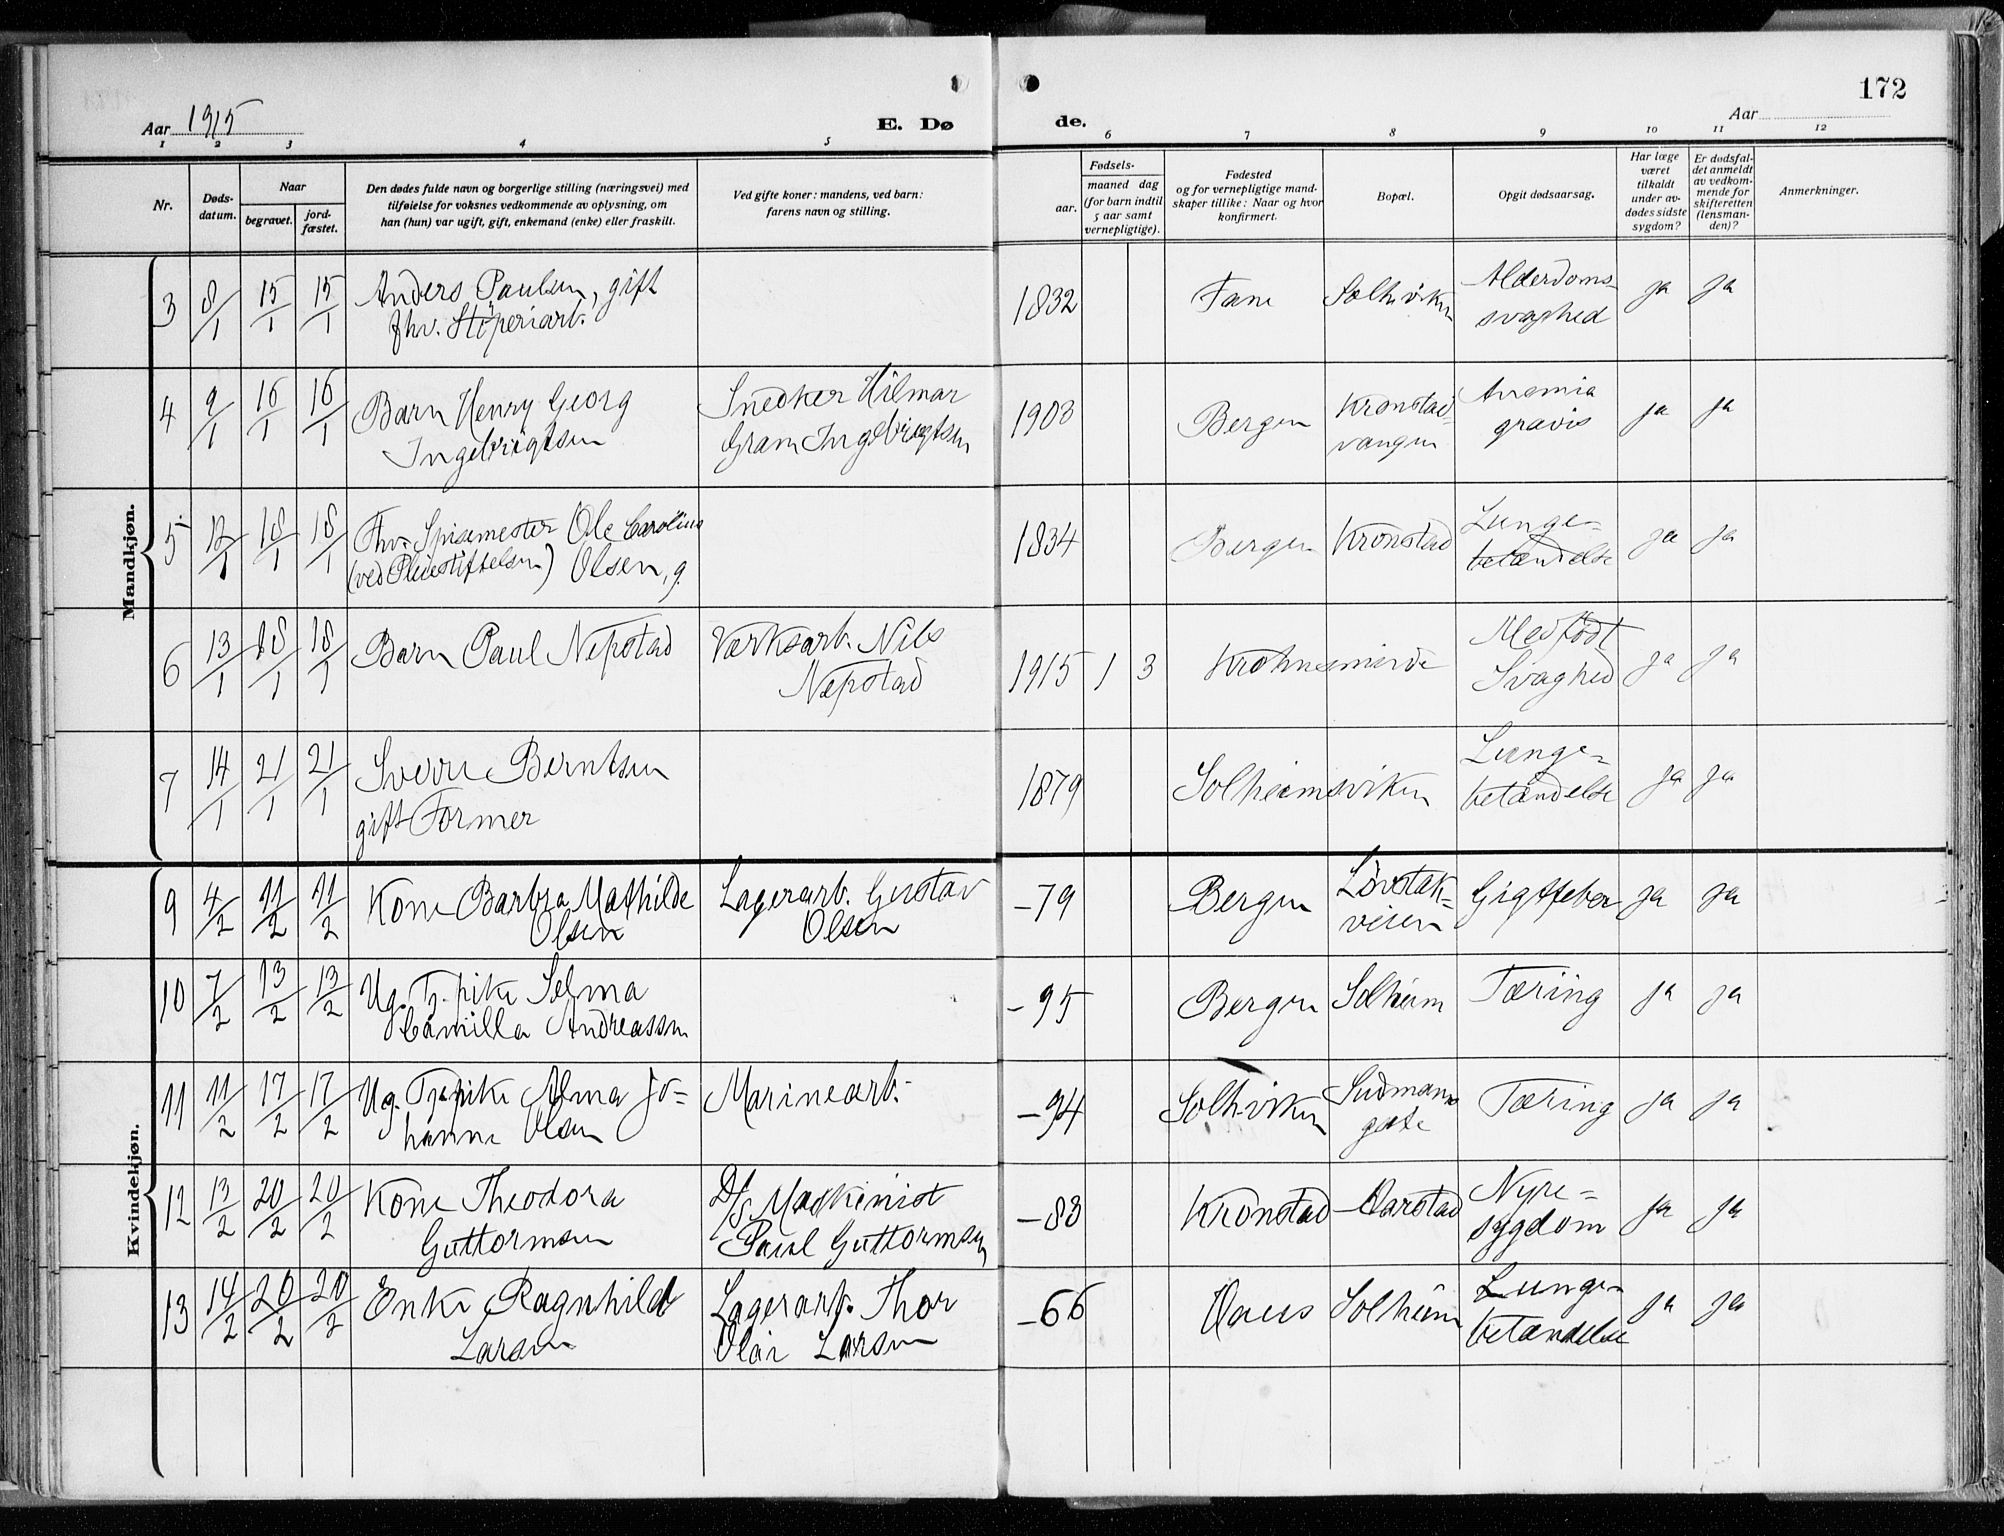 172
Aar 1915
E. Dø
de.
Aar
1 2 3 4 5 6 7 8 9 10 11 12
Nr.
Døds-
datum.
Naar
begravet.
jord-
fæstet.
Den dødes fulde navn og borgerlige stilling (næringsvei) med
tilføielse for voksnes vedkommende av oplysning, om
han (hun) var ugift, gift, enkemand (enke) eller fraskilt.
Ved gifte koner: mandens, ved barn:
farens navn og stilling.
Fødsels-
aar.
maaned dag
(for barn indtil
5 aar samt
vernepligtige).
Fødested
og for vernepligtige mand-
skaper tillike: Naar og hvor
konfirmert.
Bopæl.
Opgit dødsaarsag.
Har læge
været
tilkaldt
under av-
dødes sidste
sygdom?
Er dødsfal-
det anmeldt
av vedkom-
mende for
skifteretten
(lensman-
den)?
Anmerkninger.
Mandkjøn.
3 8/1 15/1 15/1 Anders Paulsen, gift
fhv. Støperiarb.
1832 Fane Solh.viken Alderdoms-
svaghed
ja ja
4 9/1 16/1 16/1 Barn Henry Georg
Ingebrigtsen
Snedker Hilmar
Gram Ingebrigtsen
1903 Bergen Kronstad-
vangen
Anæmia
gravis
ja ja
5 12/1 18/1 18/1 Fhv. Spisemester Ole Carolius
(ved Pleiestiftelsen) Olsen, g.
1834 Bergen Kronstad Lunge-
betændelse
ja ja
6 13/1 18/1 18/1 Barn Paul Nepstad Værksarb. Nils
Nepstad
1915 1 3 Krohnsminde Medfødt
Svaghed
ja ja
7 14/1 21/1 21/1 Sverre Berntsen
gift Former
1879 Solheimsviken Lunge-
betændelse
ja ja
Kvindekjøn.
9 4/2 11/2 11/2 Kone Barbra Mathilde
Olsen
Lagerarb. Gustav
Olsen
-79 Bergen Løvstak-
veien
Gigtfeber ja ja
10 7/2 13/2 13/2 Ug. Tj.pike Selma
Camilla Andreassen
-95 Bergen Solheim Tæring ja ja
11 11/2 17/2 17/2 Ug. Tj.pike Alma Jo-
hanne Olsen
Marinearb.
-94 Solh.viken Sudmanns
gate
Tæring ja ja
12 13/2 20/2 20/2 Kone Theodora
Guttormsen
D/S Maskinist
Paul Guttormsen
-83 Kronstad Aarstad Nyre-
sygdom
ja ja
13 14/2 20/2 20/2 Enke Ragnhild
Larsen
Lagerarb. Thor
Olai Larsen
-66 Haus Solheim Lunge-
betændelse
ja ja